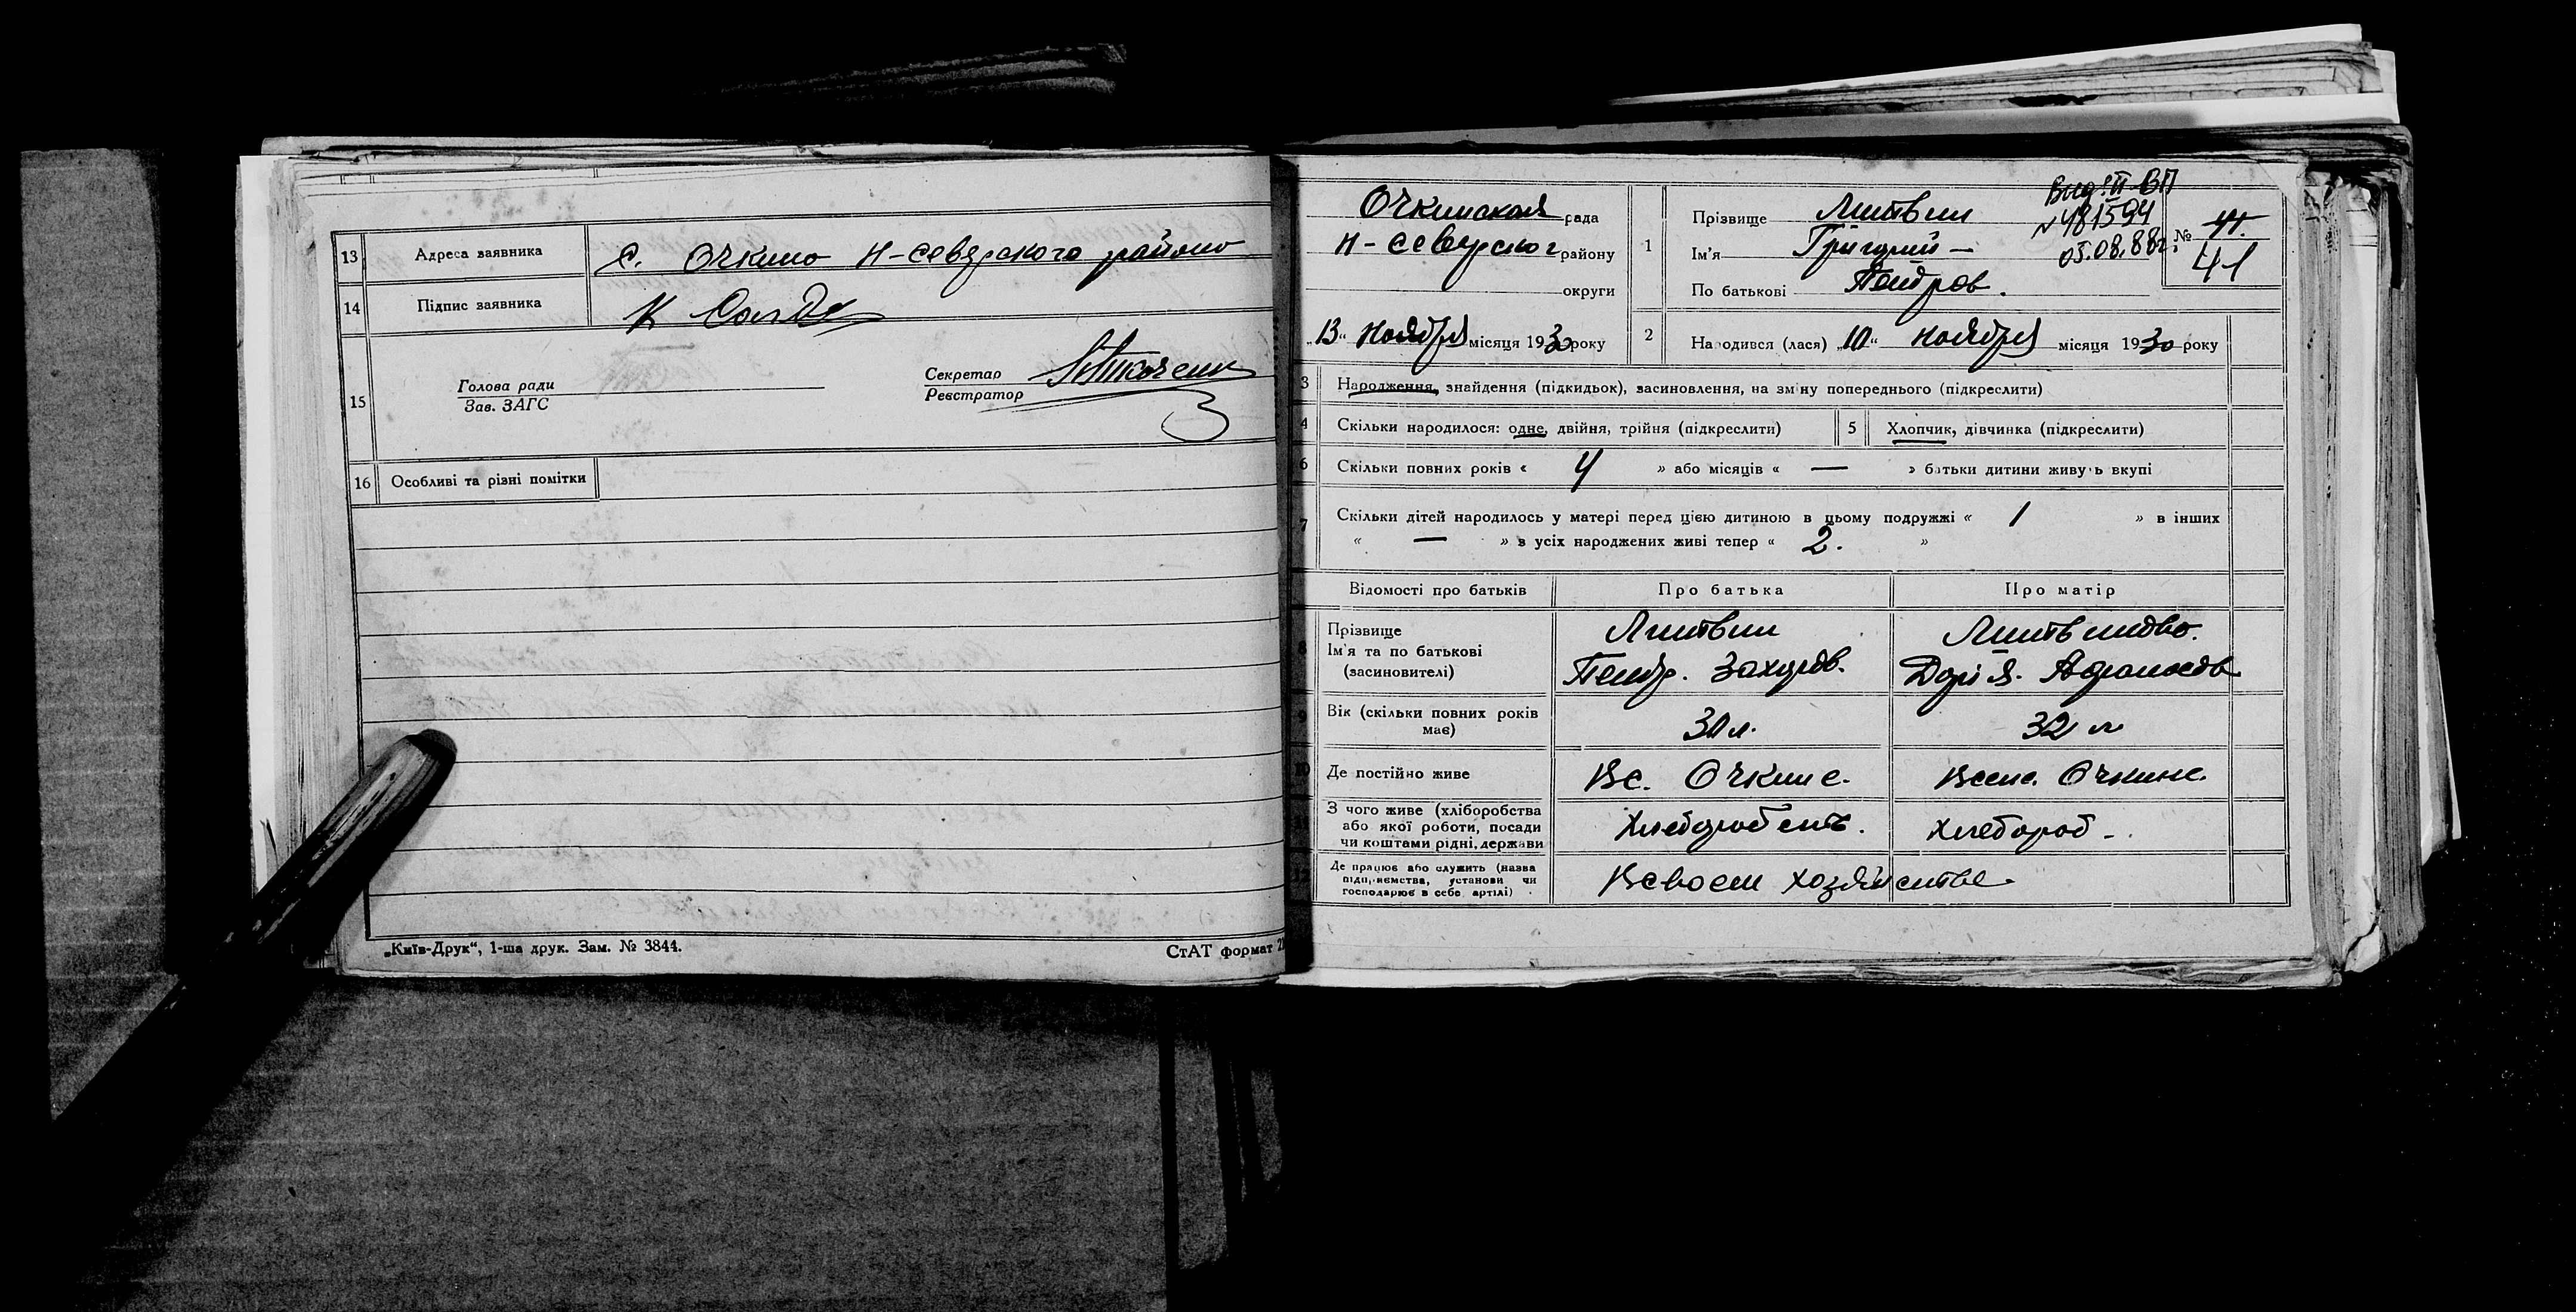 13 Адреса заявника с. Очкино Н-Северского району
14 Підпис заявника К
15 Голова ради
Зав. ЗАГС
Секретар
Реєстратор
16 Особливі та різні помітки
„Київ-Друк“, 1-ша друк. Зам. № 3844.
СтАТ формат
Очкинская рада
Н-Северског району
округи
„13“ Ноября місяця 1930 року
1 Прізвище Литвин
Ім'я Григорий —
По батькові Петров.
Вид. II ВП
№481594
05.08.88г.
№ 41.
41
2 Народився (лася) „10“ ноября місяця 1930 року
3 Народження, знайдення (підкидьок), засиновлення, на зміну попереднього (підкреслити)
4 Скільки народилося: одне, двійня, трійня (підкреслити)
5 Хлопчик, дівчинка (підкреслити)
6 Скільки повних років « 4 » або місяців « — » батьки дитини живуть вкупі
7 Скільки дітей народилось у матері перед цією дитиною в цьому подружжі « 1 » в інших
« — » з усіх народжених живі тепер « 2. »
Відомості про батьків Про батька Про матір
8 Прізвище
Ім'я та по батькові
(засиновителі)
Литвин
Петр. Захаров.
Литвинова.
Дарія.
9 Вік (скільки повних років
має)
30 л.
32 л
Де постійно живе Вс. Очкине. Всели. Очкине.
З чого живе (хліборобства
або якої роботи, посади
чи коштами рідні, держави
Хлебороб.
Де працює або служить (назва
підприємства, установи чи
господарює в себе артілі)
Всвоем хозяйстве